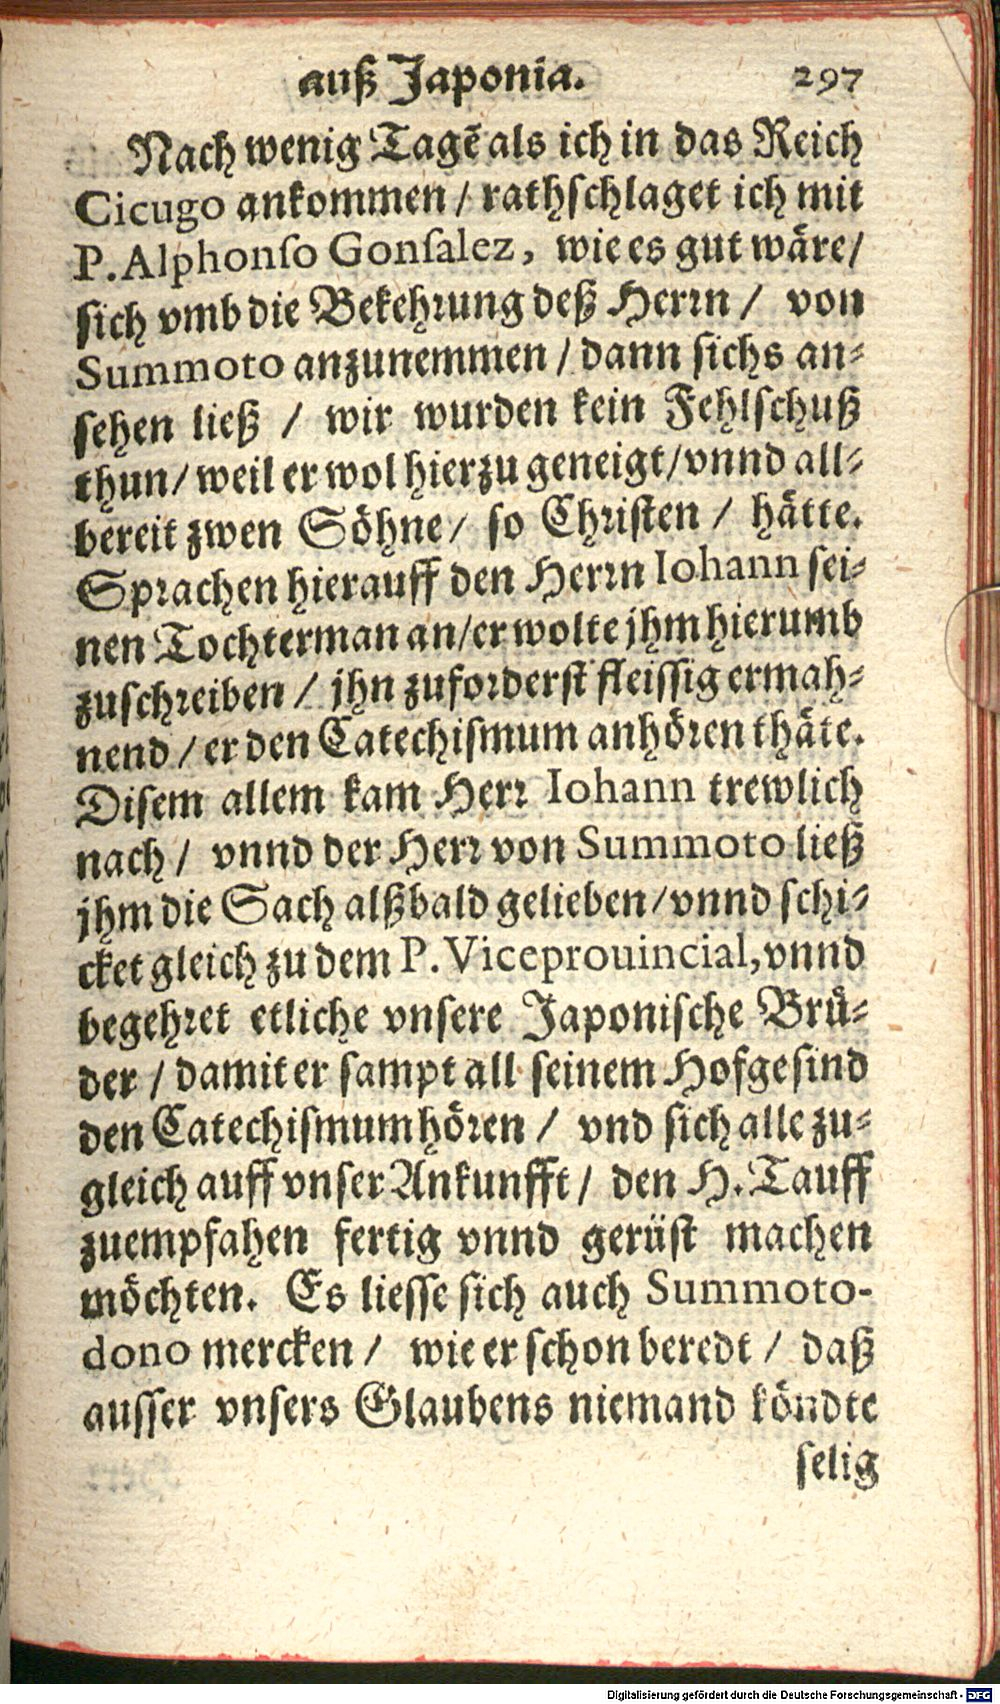 auß Japonia. 297
Nach wenig Tagẽ als ich in das Reich
Cicugo ankommen / rathschlaget ich mit
P. Alphonso Gonsalez, wie es gut wäre /
sich vmb die Bekehrung deß Herrn / von
Summoto anzunemmen / dann sichs an-
sehen ließ / wir wurden kein Fehlschuß
thun / weil er wol hierzu geneigt / vnnd all-
bereit zwen Söhne / so Christen / hätte.
Sprachen hierauff den Herrn Iohann sei-
nen Tochterman an / er wolte jhm hierumb
zuschreiben / jhn zuforderst fleissig ermah-
nend / er den Catechismum anhören thäte.
Disem allem kam Herr Iohann trewlich
nach / vnnd der Herr von Summoto ließ
jhm die Sach alßbald gelieben / vnnd schi-
cket gleich zu dem P. Viceprouincial, vnnd
begehret etliche vnsere Japonische Brü-
der / damit er sampt all seinem Hofgesind
den Catechismum hören / vnd sich alle zu-
gleich auff vnser Ankunfft / den H. Tauff
zuempfahen fertig vnnd gerüst machen
möchten. Es liesse sich auch Summoto-
dono mercken / wie er schon beredt / daß
ausser vnsers Glaubens niemand köndte
selig
Digitalisierung gefördert durch die Deutsche Forschungsgemeinschaft - DFG